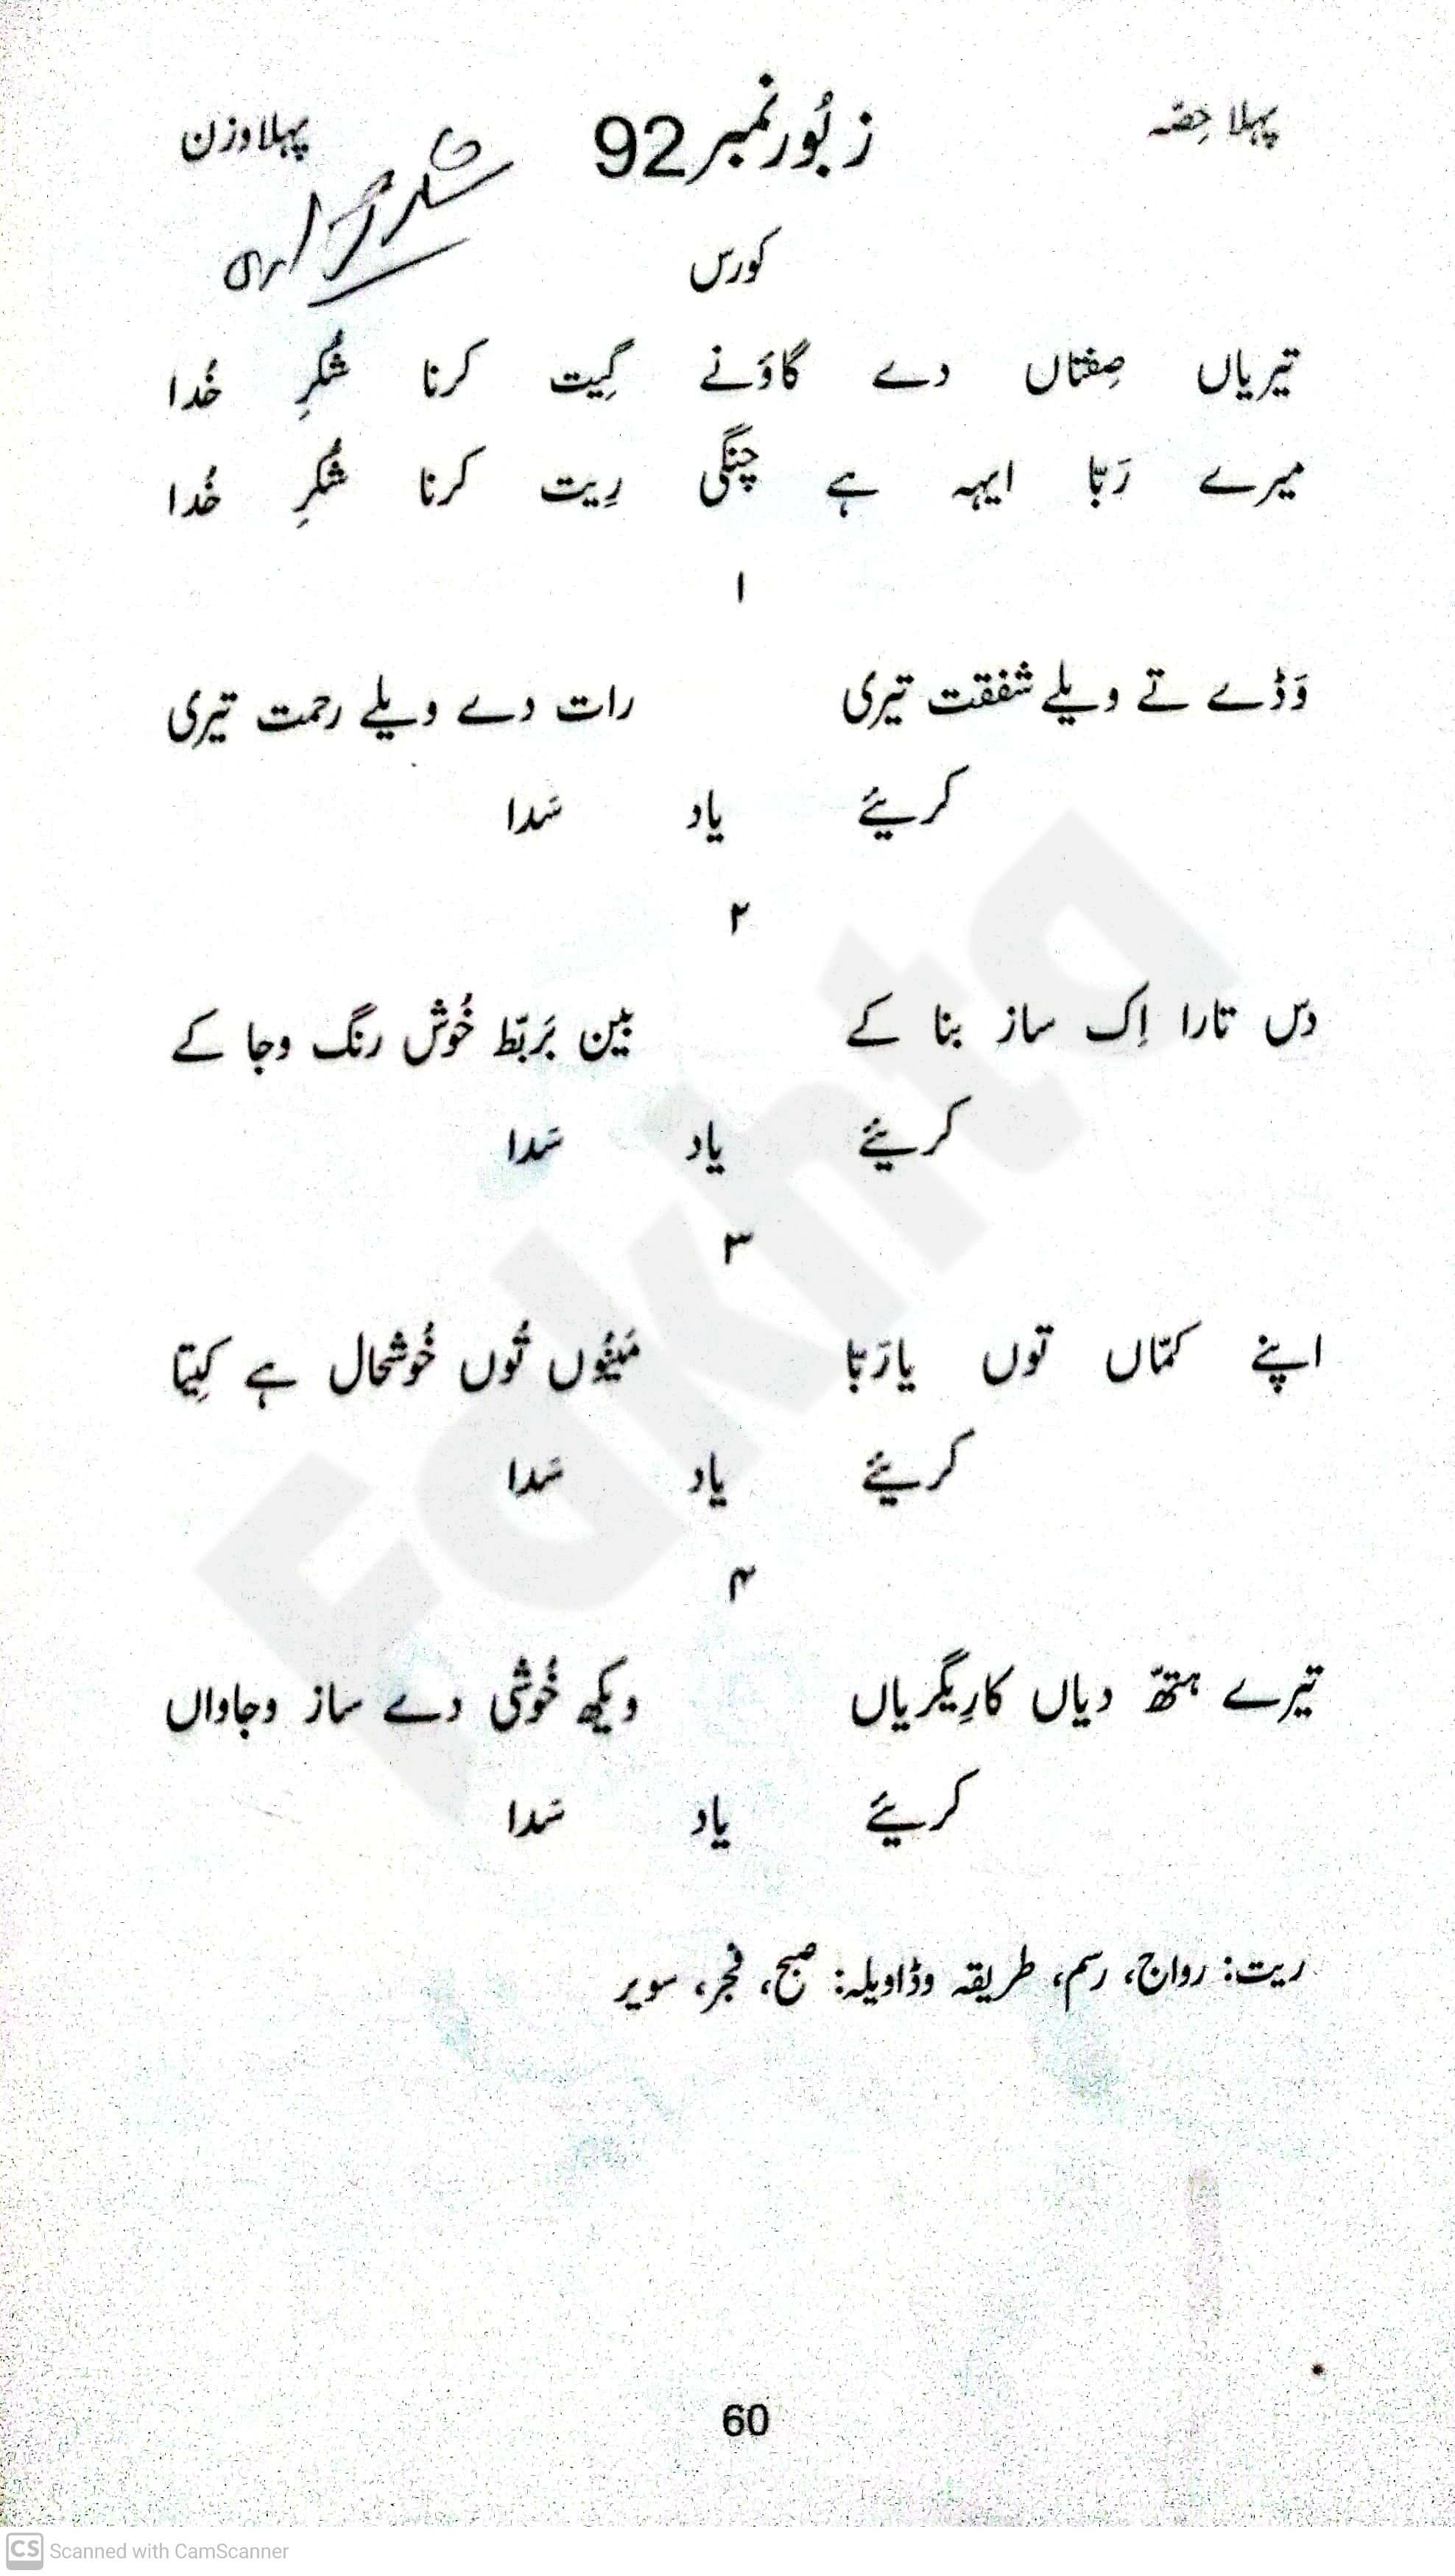 پہلا حِصّہ زبُور نمبر 92 پہلا وزن
کورس
تیریاں صِفتاں دے گاوَنے گِیت کرنا شُکرِ خُدا
میرے رَبّا ایہہ ہے چنگی رِیت کرنا شُکرِ خُدا
۱
وَڈے تے ویلے شفقت تیری رات دے ویلے رحمت تیری
کریئے یاد سَدا
۲
دس تارا اِک ساز بنا کے بین بَربَط خُوش رنگ وجا کے
کریئے یاد سَدا
۳
اپنے کمّاں توں یارَبّا مَینُوں تُوں خُوشحال ہے کِیتا
کریئے یاد سَدا
۴
تیرے ہتھّ دیاں کارِیگریاں ویکھ خُوشی دے ساز وجاواں
کریئے یاد سَدا
ریت: رواج، رسم، طریقہ وڈاویلہ: صبح، فجر، سویر
60
Fakhta
CS Scanned with CamScanner